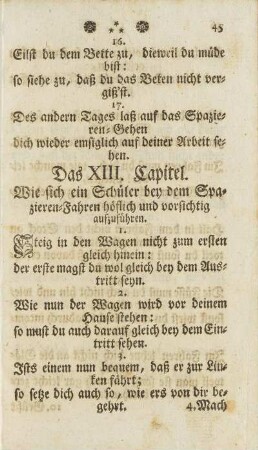 45
16.
Eilst du dem Bette zu, dieweil du müde
bist:
so siehe zu, daß du das Beten nicht ver-
giß'st.
17.
Des andern Tages laß auf das Spazie-
ren-Gehen
dich wieder emsiglich auf deiner Arbeit se-
hen.
Das XIII. Capitel.
Wie sich ein Schüler bey dem Spa-
zieren-Fahren höflich und vorsichtig
aufzuführen.
1.
Steig in den Wagen nicht zum ersten
gleich hinein:
der erste magst du wol gleich bey dem Aus-
tritt seyn.
2.
Wie nun der Wagen wird vor deinem
Hause stehen:
so must du auch darauf gleich bey dem Ein-
tritt sehen.
3.
Ists einem nun bequem, daß er zur Lin-
ken fährt;
so setze dich auch so, wie ers von dir be-
gehrt. 4. Mach